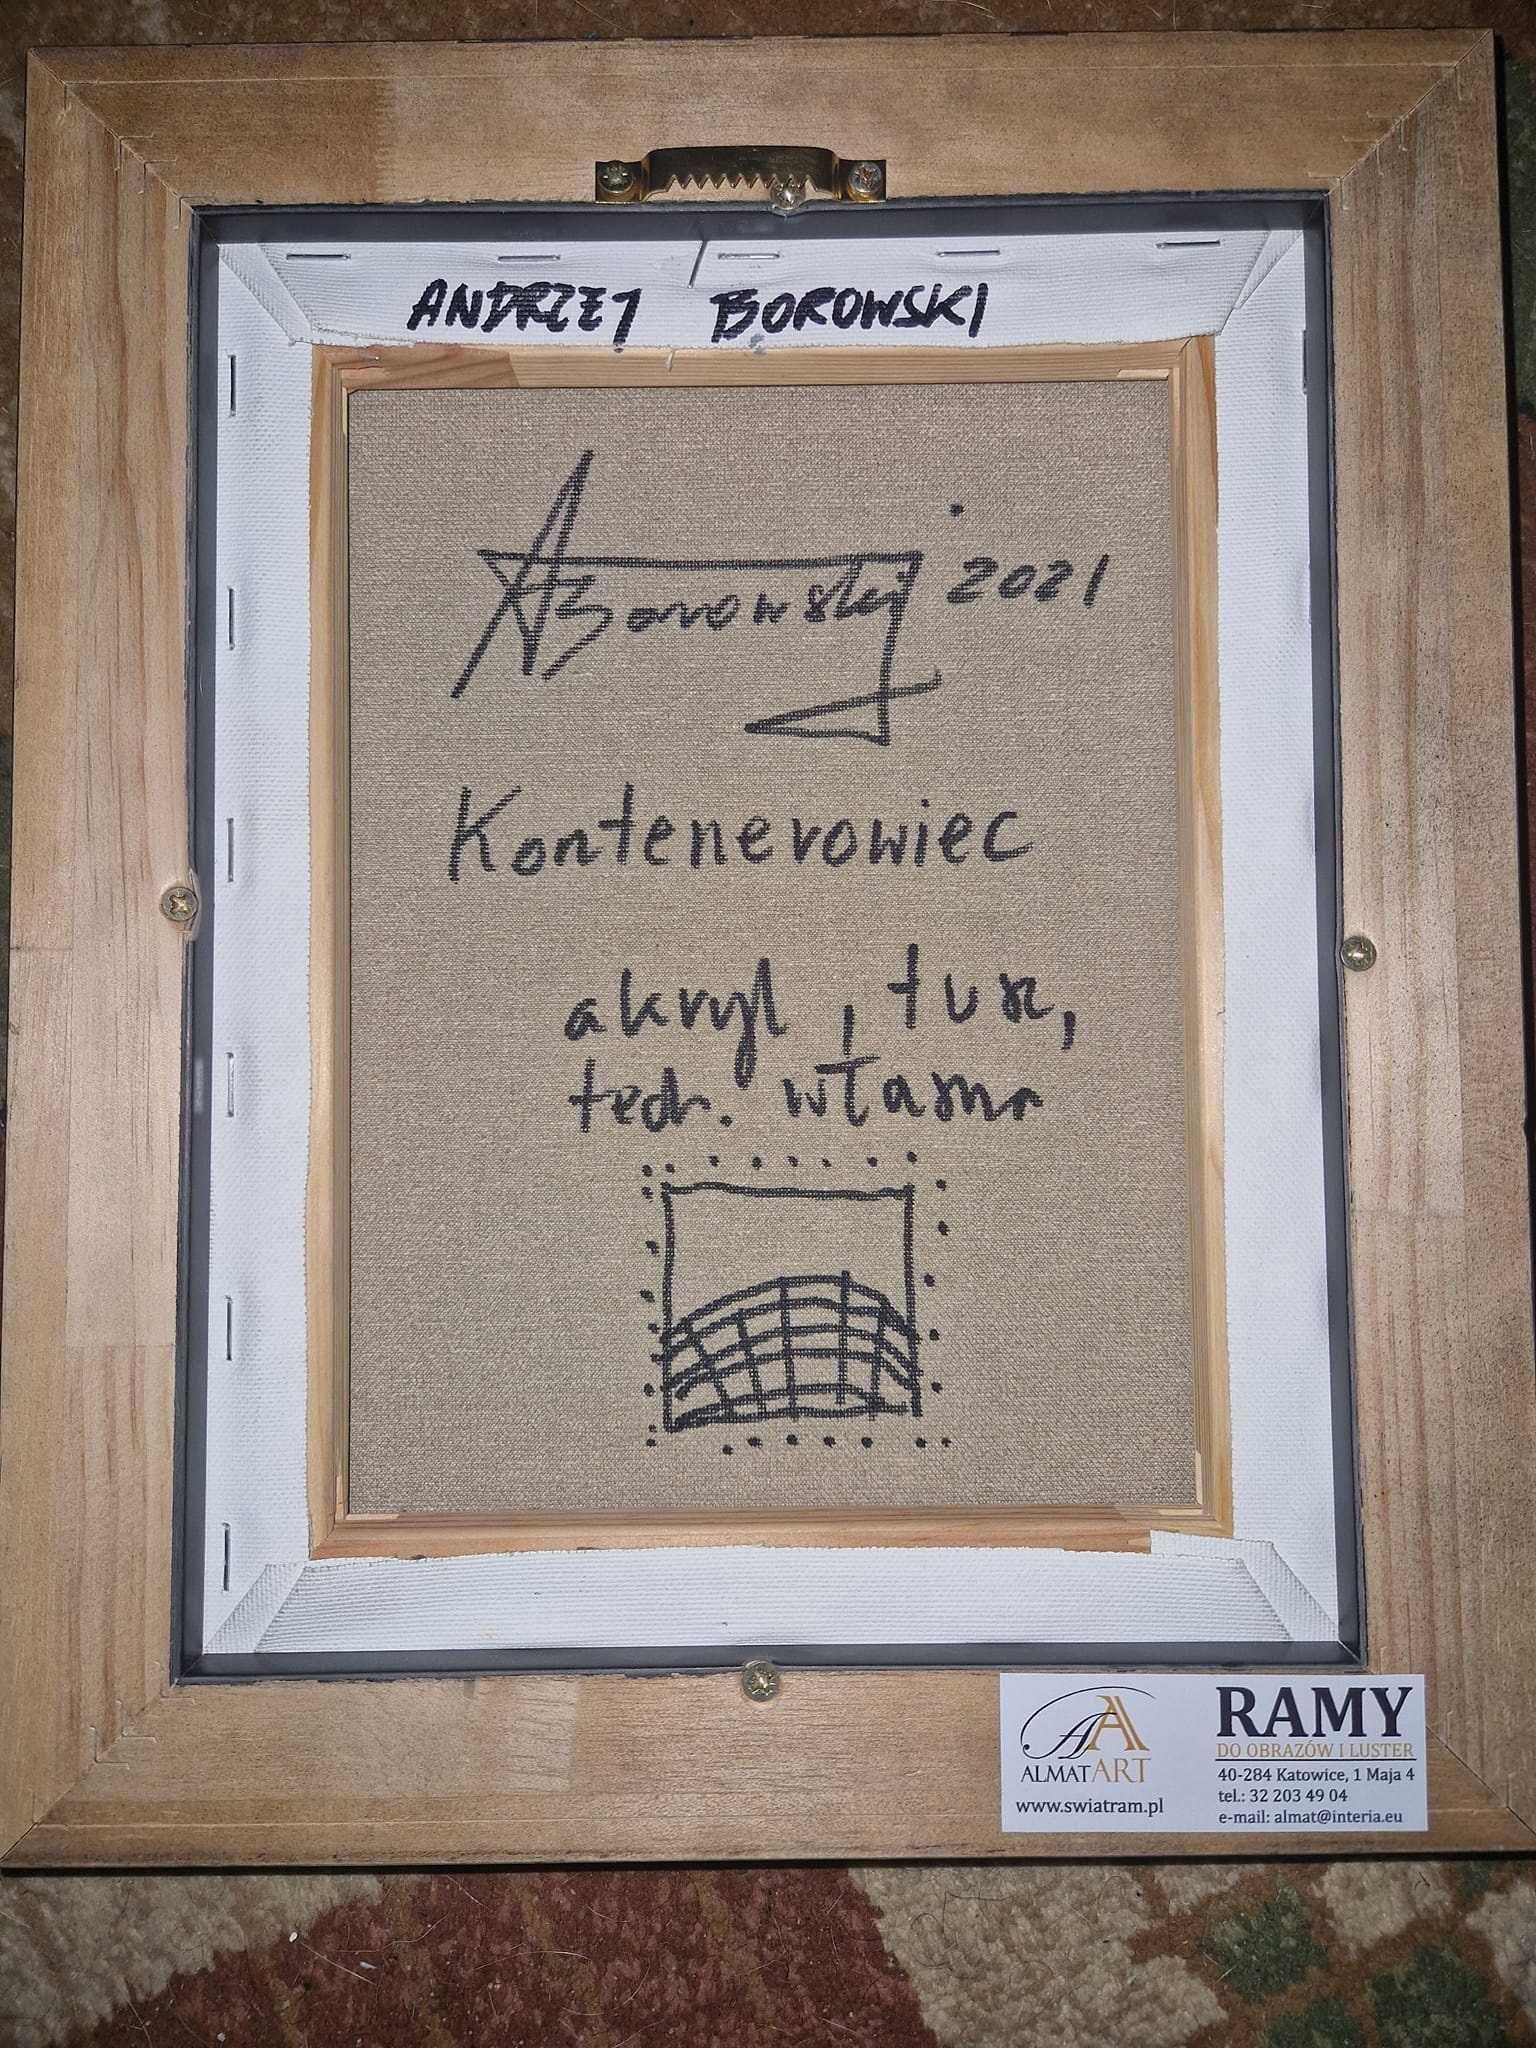 ANDRZEJ BOROWSKI
ABorowski 2021
Kontenerowiec
akryl, tusz,
tech. własna
ALMATART
www.swiatram.pl
RAMY
DO OBRAZÓW I LUSTER
40-284 Katowice, 1 Maja 4
tel.: 32 203 49 04
e-mail: almat@interia.eu